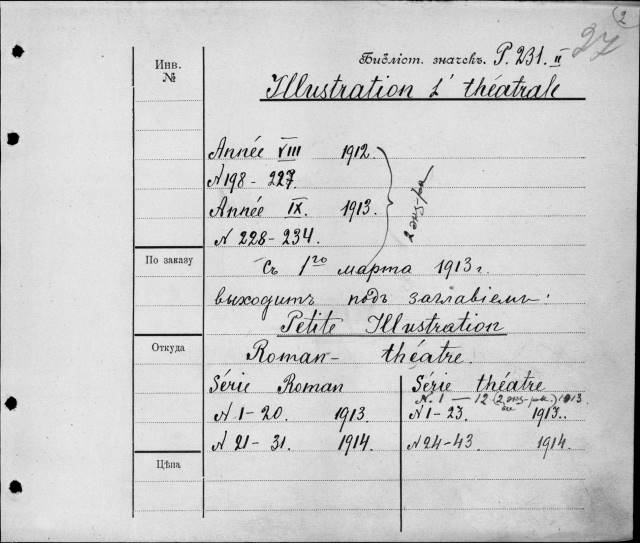 2
27
Инв. №
Библіот. значекъ. P. 231. II
Illustration L' théatrale
Année VIII 1912.
N 198 - 227.
Année IX. 1913.
N 228 - 234.
2 экз-ра
По заказу
Съ 1го марта 1913 г.
выходитъ подъ заглавіемъ:
Petite Illustration
Откуда
Roman - théatre.
Série Roman
N 1 - 20. 1913.
N 21 - 31. 1914.
Série théatre
N. 1 — 12 (2 экз-ра.) 1913
N 1 - 23. 1913.
N 24 - 43. 1914.
Цѣна